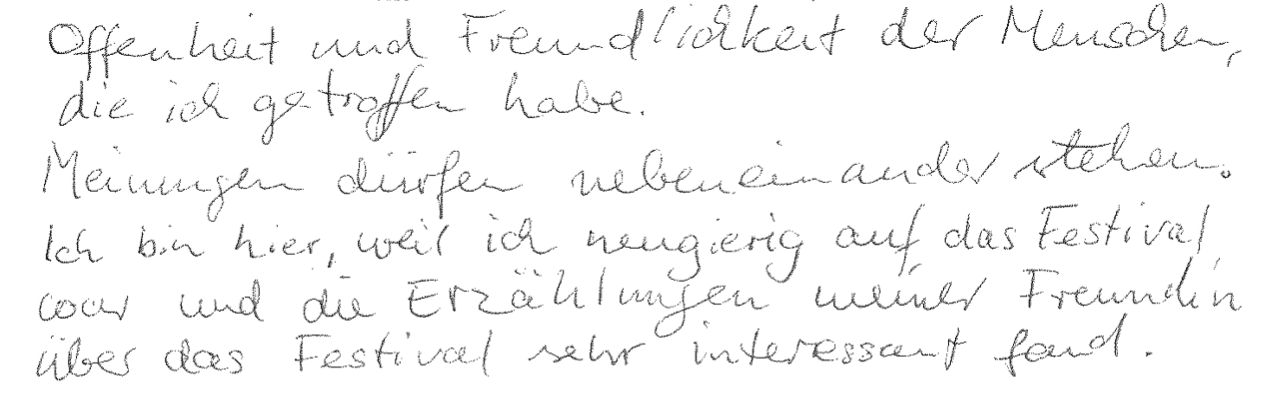 Offenheit und Freundlichkeit der Menschen,
die ich getroffen habe.
Meinungen dürfen nebeneinander stehen.
Ich bin hier, weil ich neugierig auf das Festival
war und die Erzählungen meiner Freundin
über das Festival sehr interessant fand.